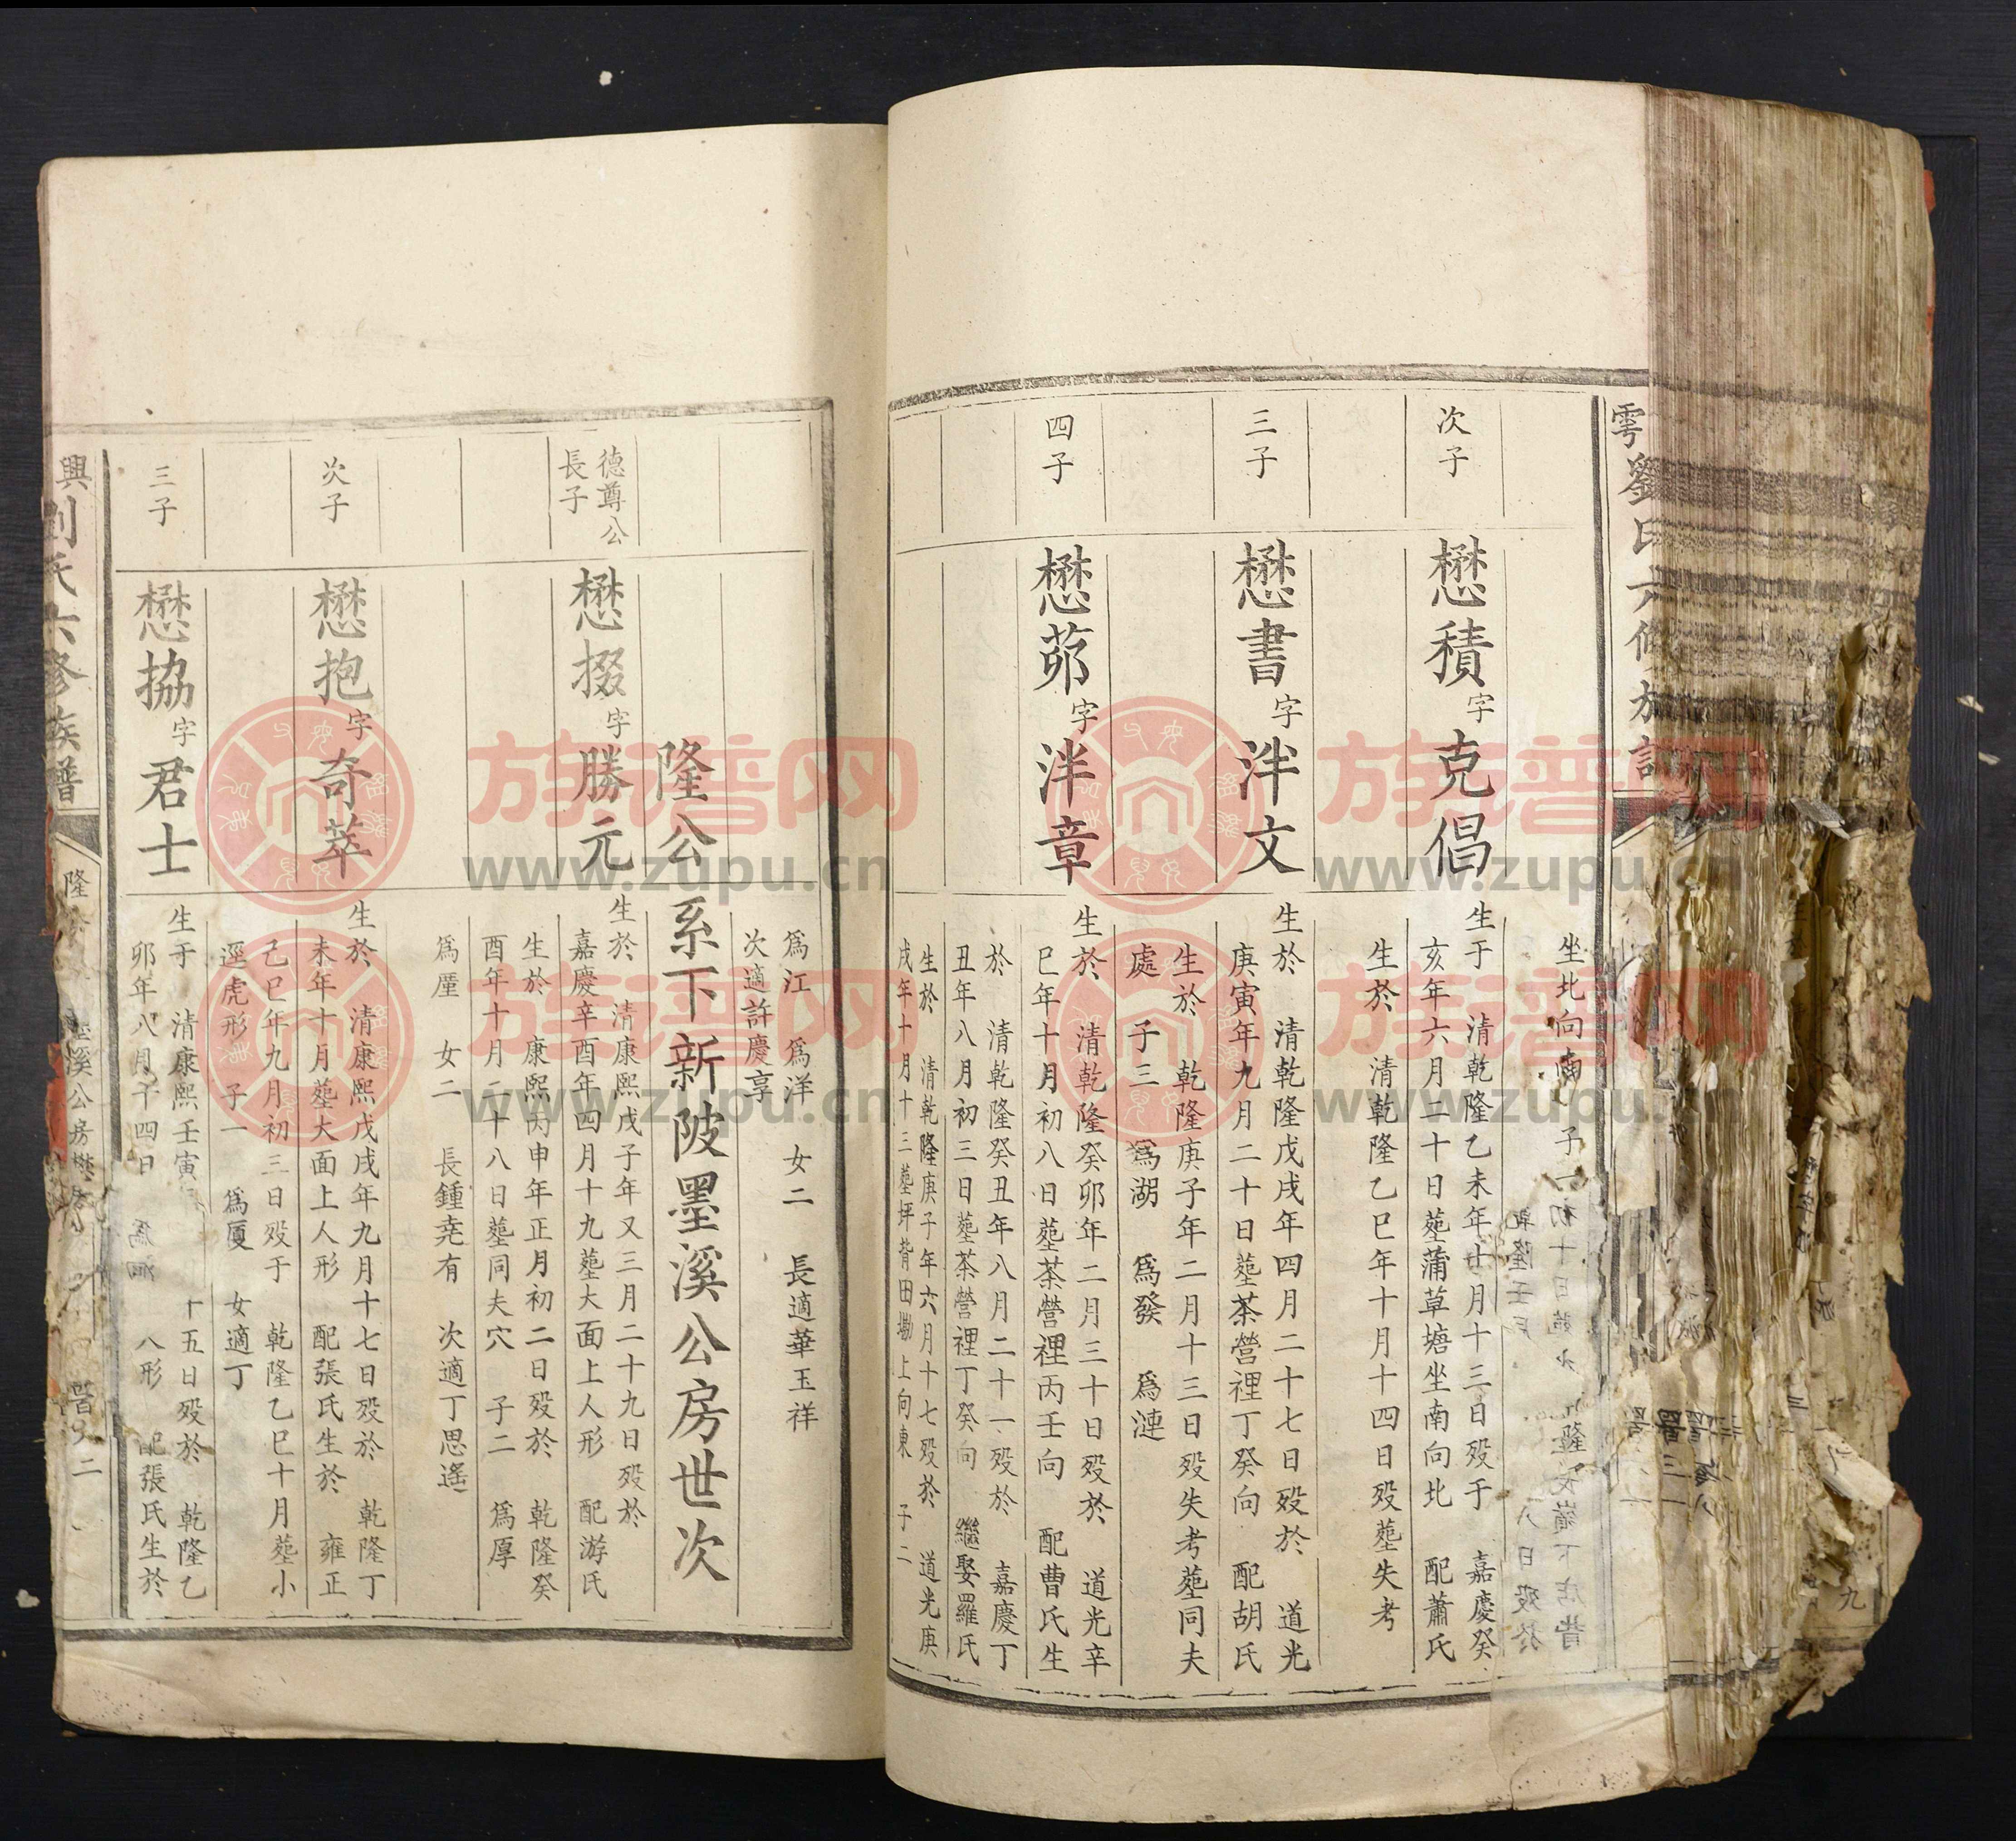 雩
劉氏六修族譜
坐北向南 子
初十日塟
乾隆
八日殁於
次子
懋積字克倡
生于 清乾隆乙未年十月十三日殁于 嘉慶癸
亥年六月二十日塟蒲草塘坐南向北 配蕭氏
生於 清乾隆乙巳年十月十四日殁塟失考
三子
懋書字泮文
生於 清乾隆戊戌年四月二十七日殁於 道光
庚寅年九月二十日塟茶營裡丁癸向 配胡氏
生於 乾隆庚子年二月十三日殁失考塟同夫
處 子三 爲湖 爲發 爲漣
四子
懋茆字泮章
生於 清乾隆癸卯年二月三十日殁於 道光辛
巳年十月初八日塟茶營裡丙壬向 配曹氏生
於 清乾隆癸丑年八月二十一殁於 嘉慶丁
丑年八月初三日塟茶營裡丁癸向 繼娶羅氏
生於 清乾隆庚子年六月十七殁於 道光庚
戌年十月十三塟坪背田塝上向東 子二
爲江 爲洋 女二 長適華玉祥
次適許慶享
隆公系下新陂墨溪公房世次
德尊公
長子
懋掇字勝元
生於 清康熙戊子年又三月二十九日殁於
嘉慶辛酉年四月十九塟大面上人形 配游氏
生於 康熙丙申年正月初二日殁於 乾隆癸
酉年十月二十八日塟同夫穴 子二 爲厚
爲厘 女二 長鍾堯有 次適丁思遙
次子
懋抱字奇萃
生於 清康熙戊戌年九月十七日殁於 乾隆丁
未年十月塟大面上人形 配張氏生於 雍正
己巳年九月初三日殁于 乾隆乙巳十月塟小
逕虎形 子一 爲厦 女適丁
三子
懋協字君士
生于 清康熙壬寅 十五日殁於 乾隆乙
卯年八月廿四日 八形 配張氏生於
興
劉氏六修族譜
隆公 溪公房 二
族谱网
www.zupu.cn
族谱网
www.zupu.cn
族谱网
www.zupu.cn
族谱网
www.zupu.cn